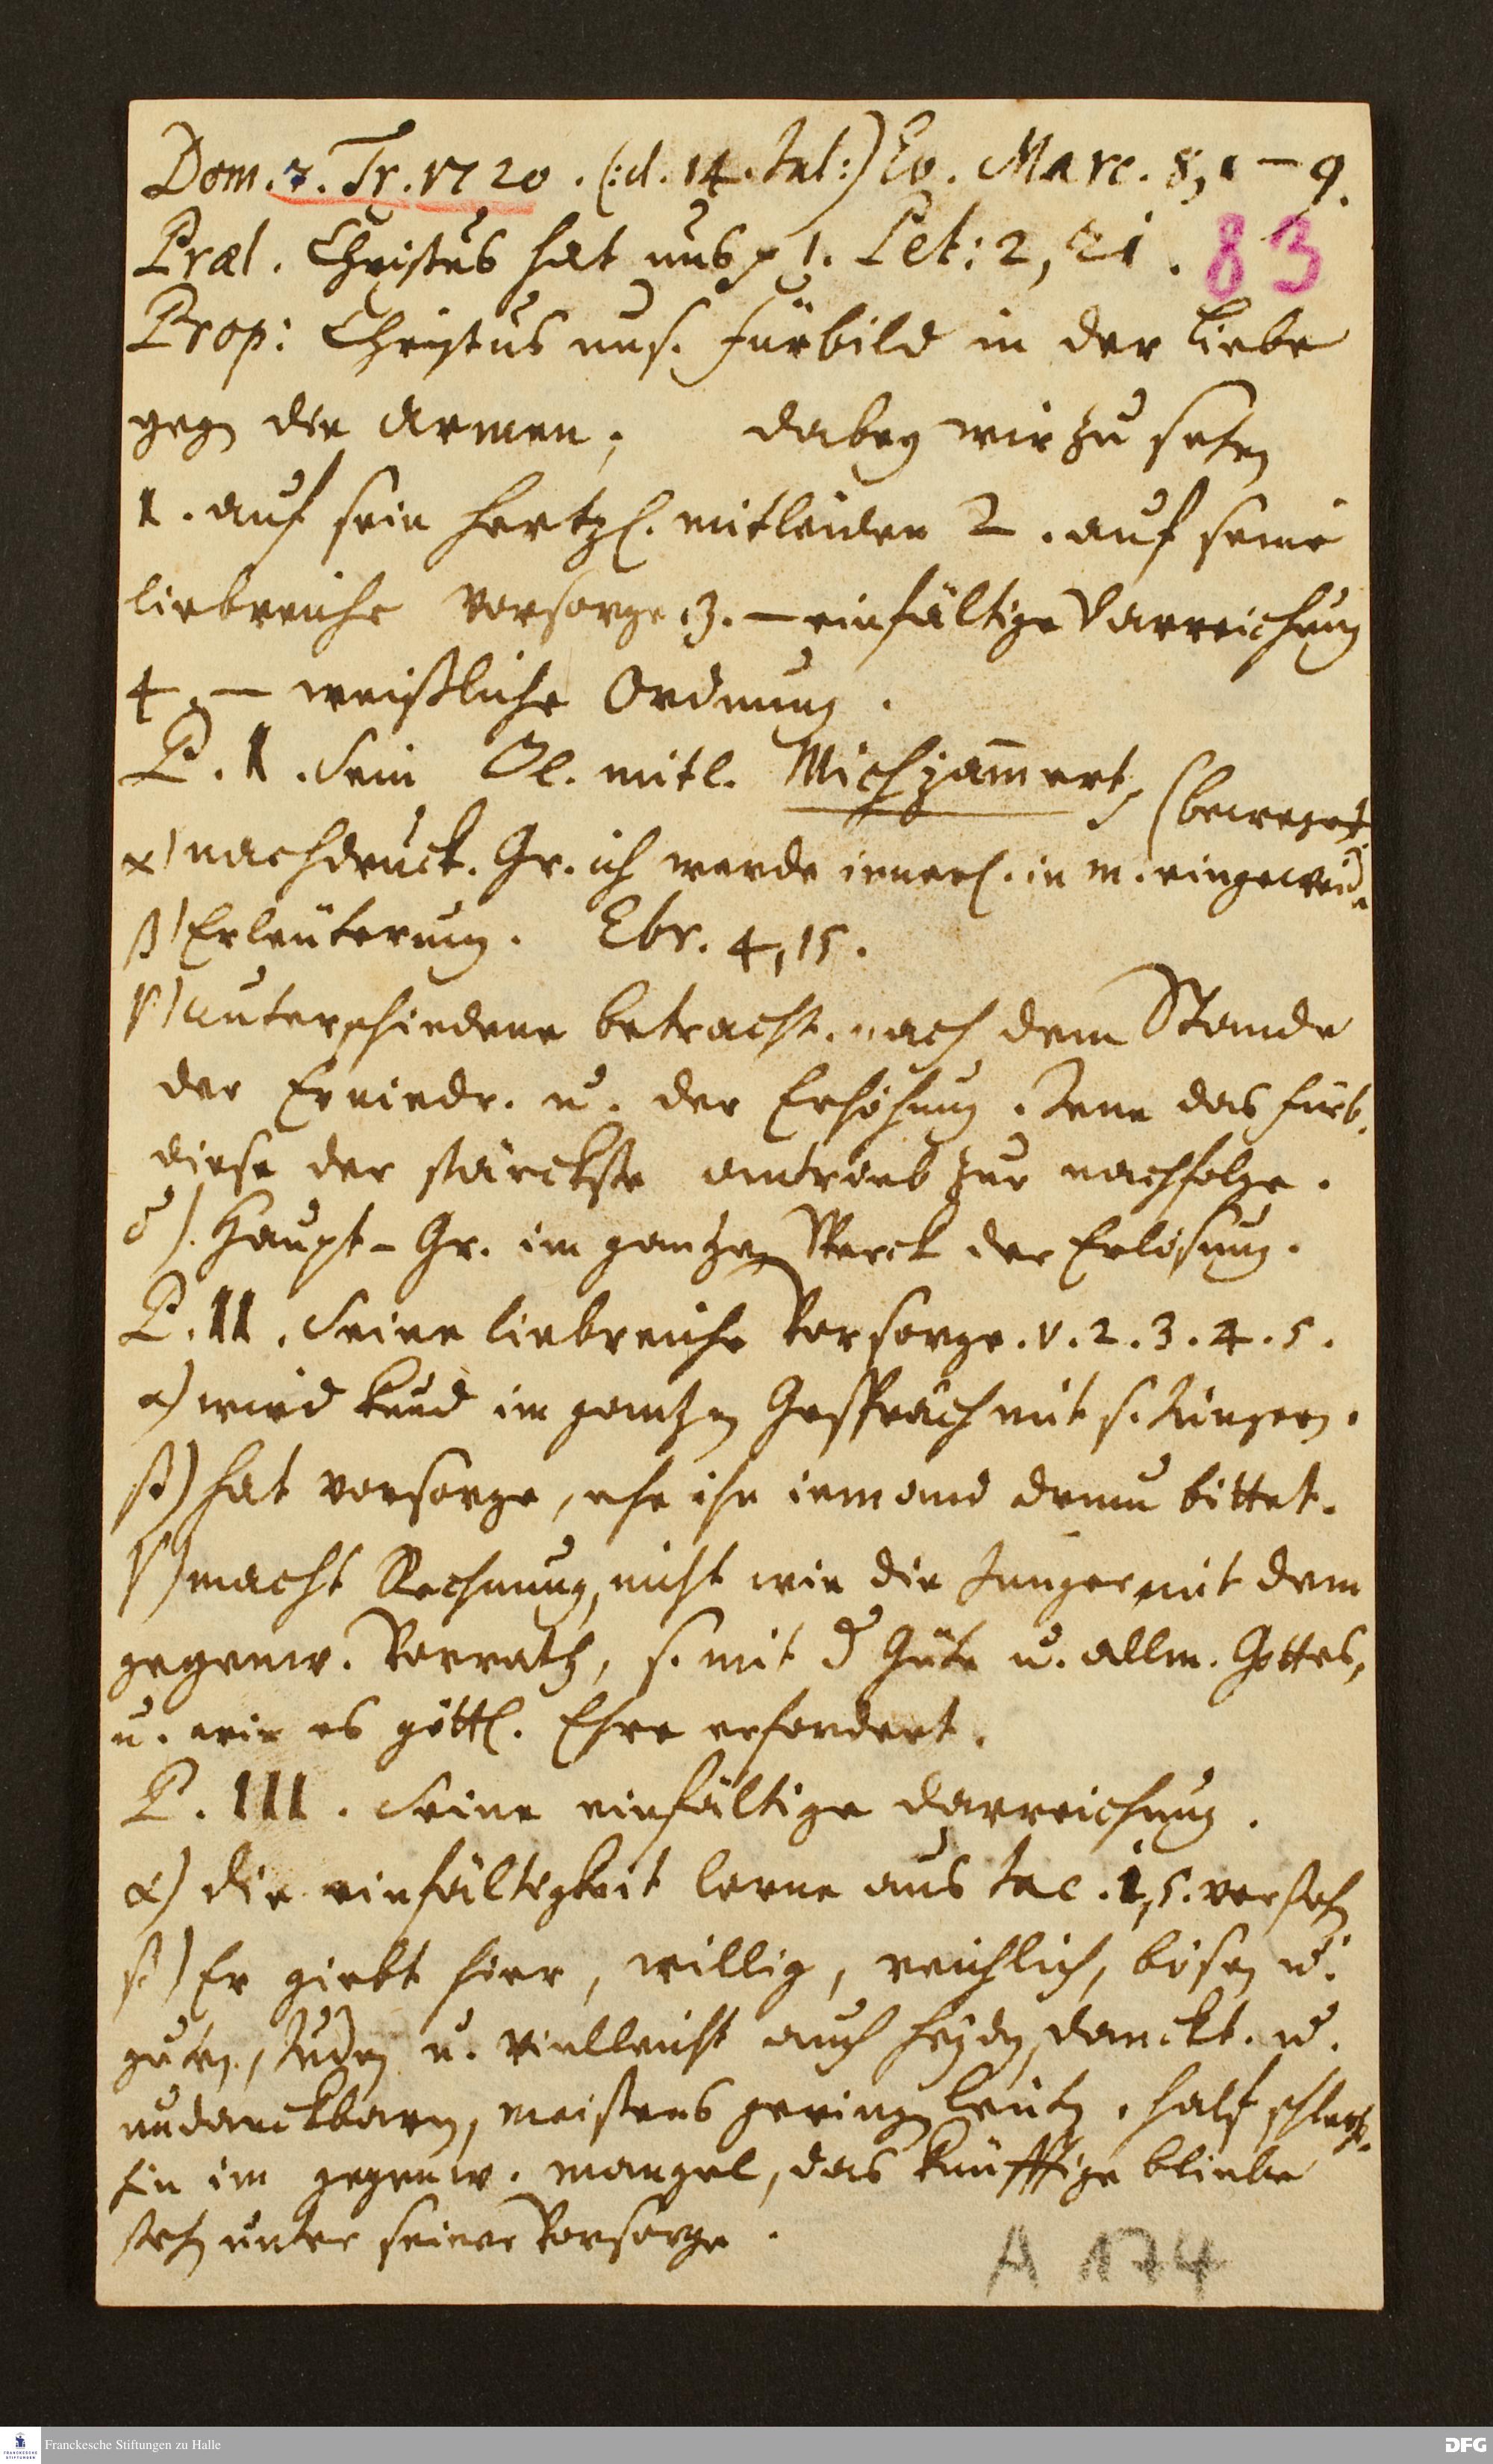 Dom. 7. Tr. 1720. (:d. 14. Jul:) Ev. Marc. 8, 1–9.
Præl. Christus hat uns p 1. Pet: 2, 21. 83
Prop: Christus uns. fürbild in der Liebe
gegen die Armen; dabey wir zu sehen
1. auf sein hertzl. mitleiden 2. auf seine
liebreiche Vorsorge 3. — einfältige Darreichung
4. — weißliche Ordnung.
P. 1. Sein mitl. Mich jam̄ert,
(beweget
α) nachdruck. Gr. ich werde innerl. in m. eingeweid.
β) Erleuterung. Ebr. 4, 15.
γ) unterschiedene betracht. nach dem Stande
der Erniedr. u. der Erhöhung. Jene das fürb.
diese der stärckste antrieb zur nachfolge.
δ). Haupt-Gr. im gantzen Werck der Erlösung.
P. II. Seine liebreiche Vorsorge. v. 2. 3. 4. 5.
α) wird kund im gantzen Gespräch mit s. Jüngern.
β) hat vorsorge, ehe ihn iemand drum bittet.
γ) macht Rechnung, nicht wie die Jünger mit dem
gegenw. Vorrath, s. mit d Güte u. allm. Gottes,
u. wie es göttl. Ehre erfordert.
P. III. Seine einfältige darreichung.
α) die einfältigkeit lerne aus Jac. 1, 5. verstehen
β) Er giebt hier, willig, reichlich, bösen u.
guten, Juden u. vielleicht auch heyden, danckb. u.
undanckbaren, meistens geringen leuten. half schlech.
hin im gegenw. mangel, das künfftige bliebe
stehen unter seiner Vorsorge.
A 174
Franckesche Stiftungen zu Halle
FRANCKESCHE STIFTUNGEN
DFG